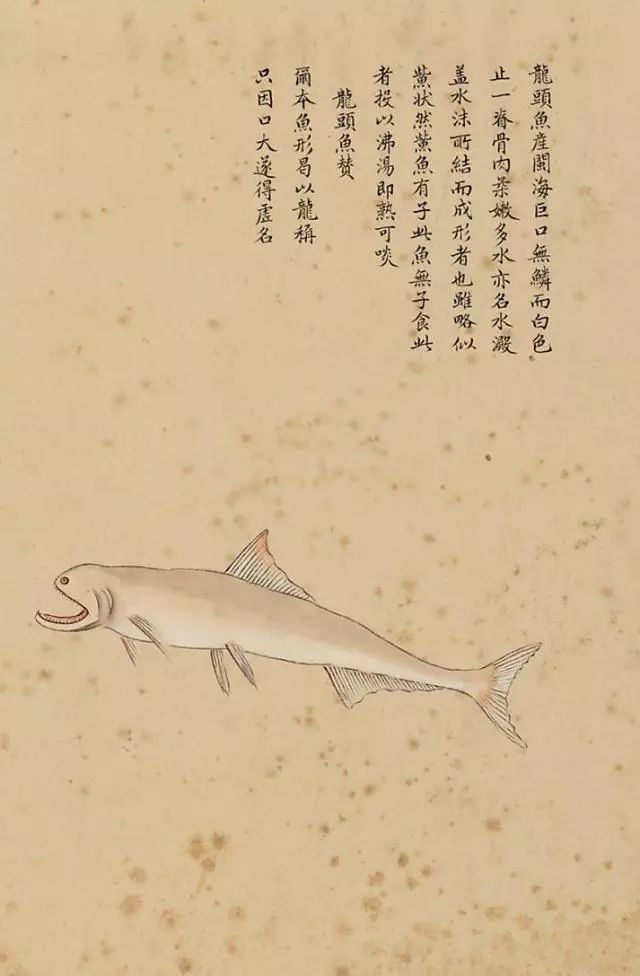 龍頭魚産閩海巨口無鱗而白色
止一脊骨肉柔嫩多水亦名水澱
盖水沫所結而成形者也雖略似
鮆状然鮆魚有子此魚無子食此
者投以沸湯即熟可啖
龍頭魚賛
爾本魚形曷以龍稱
只因口大遂得虛名